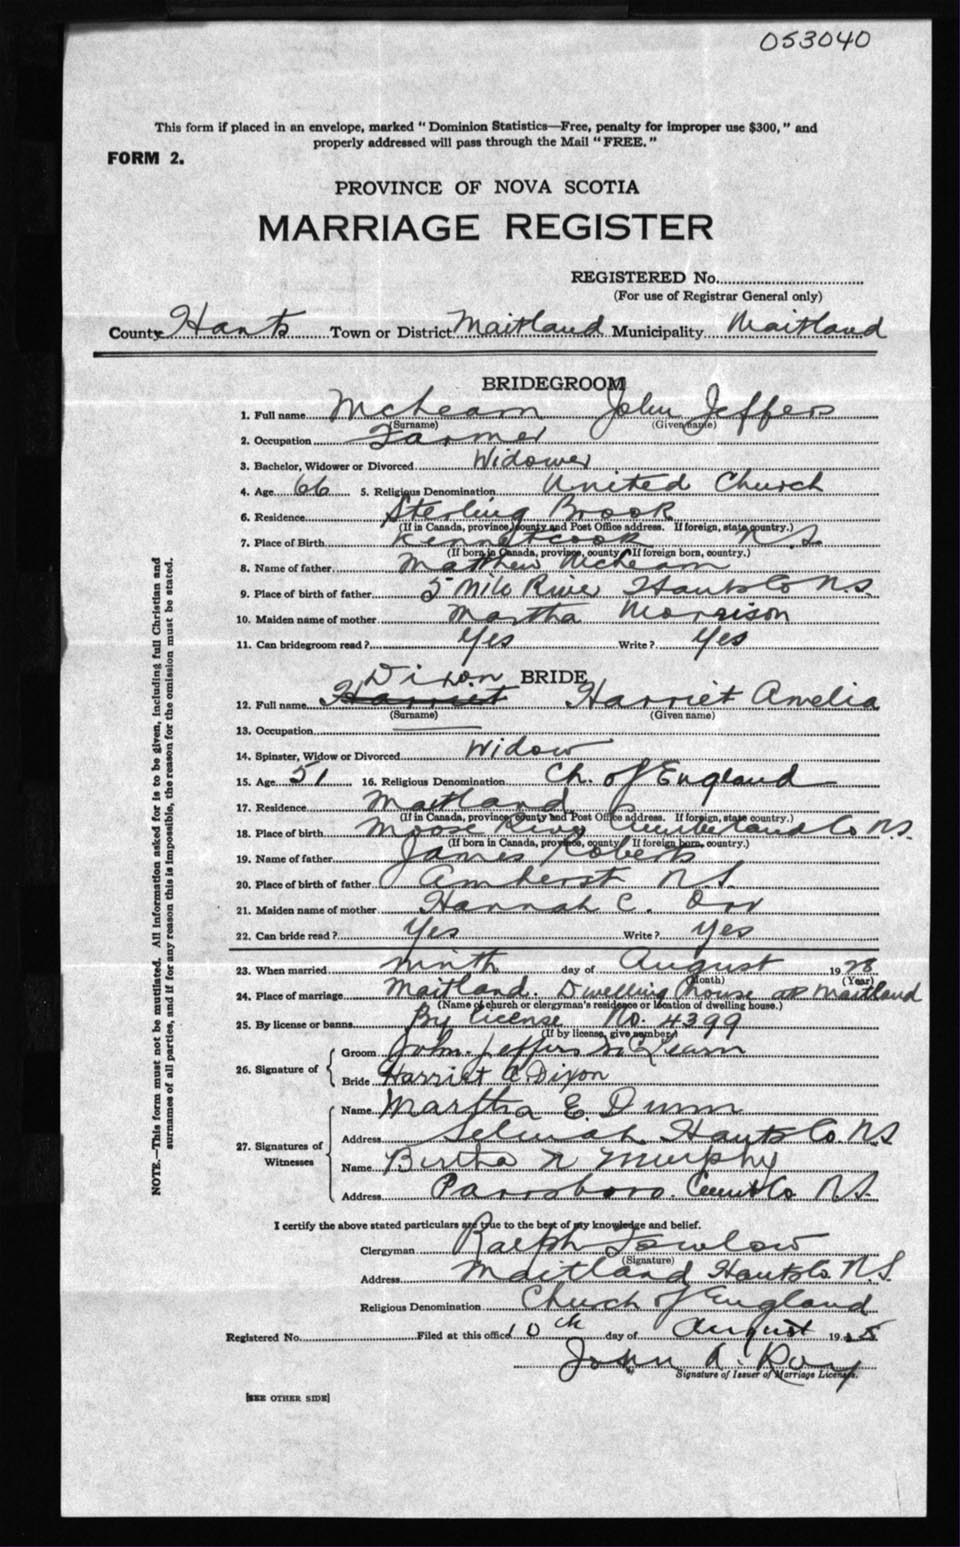 053040
This form if placed in an envelope, marked "Dominion Statistics—Free, penalty for improper use $300," and
properly addressed will pass through the Mail "FREE."
FORM 2.
PROVINCE OF NOVA SCOTIA
MARRIAGE REGISTER
REGISTERED No.
(For use of Registrar General only)
County Hants Town or District Maitland Municipality Maitland
BRIDEGROOM
1. Full name McLearn John Jeffers
(Surname) (Given name)
2. Occupation Farmer
3. Bachelor, Widower or Divorced Widower
4. Age 66 5. Religious Denomination United Church
6. Residence Sterling Brook
(If in Canada, province, county and Post Office address. If foreign, state country.)
7. Place of Birth Kennetcook N.S.
(If born in Canada, province, county. If foreign born, country.)
8. Name of father Matthew McLearn
9. Place of birth of father 5 Mile River Hants Co N.S.
10. Maiden name of mother Martha Morrison
11. Can bridegroom read? Yes Write? Yes
BRIDE
Dixon
12. Full name Harriet Harriet Amelia
(Surname) (Given name)
13. Occupation
14. Spinster, Widow or Divorced Widow
15. Age 51 16. Religious Denomination Ch. of England
17. Residence Maitland
(If in Canada, province, county and Post Office address. If foreign, state country.)
18. Place of birth Moose River Cumberland Co N.S.
(If born in Canada, province, county. If foreign born, country.)
19. Name of father James Roberts
20. Place of birth of father Amherst N.S.
21. Maiden name of mother Hannah C. Orr
22. Can bride read? Yes Write? Yes
23. When married ninth day of August 1928
(Month) (Year)
24. Place of marriage Maitland. Dwelling house at Maitland
(Name of church or clergyman's residence or location of dwelling house.)
25. By license or banns By License No. 4399
(If by license, give number)
26. Signature of
Groom John Jeffers McLearn
Bride Harriet C Dixon
27. Signatures of Witnesses
Name Martha E Dunn
Address Selmah Hants Co. N.S
Name Bertha N Murphy
Address Parrsboro. Cumb Co N.S.
I certify the above stated particulars are true to the best of my knowledge and belief.
Clergyman Ralph Fowlow
(Signature)
Address Maitland Hants Co. N.S.
Religious Denomination Church of England
Registered No. Filed at this office 10th day of August 19
John A. Roy
Signature of Issuer of Marriage Licenses.
[SEE OTHER SIDE]
NOTE.—This form must not be mutilated. All information asked for is to be given, including full Christian and
surnames of all parties, and if for any reason this is impossible, the reason for the omission must be stated.